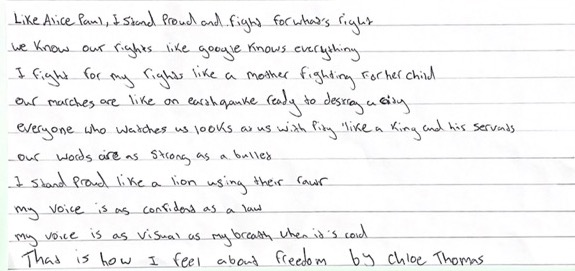 Like Alice Paul, I stand Proud and fight for whats right
we know our rights like google knows everything
I fight for my rights like a mother fighting for her child
our marches are like an earthquake ready to destroy a city
everyone who watches us looks at us with pity like a King and his servants
our words are as strong as a bullet
I stand Proud like a lion using their rawr
my voice is as confident as a law
my voice is as visual as my breath when it's cold
That is how I feel about freedom by Chloe Thomas